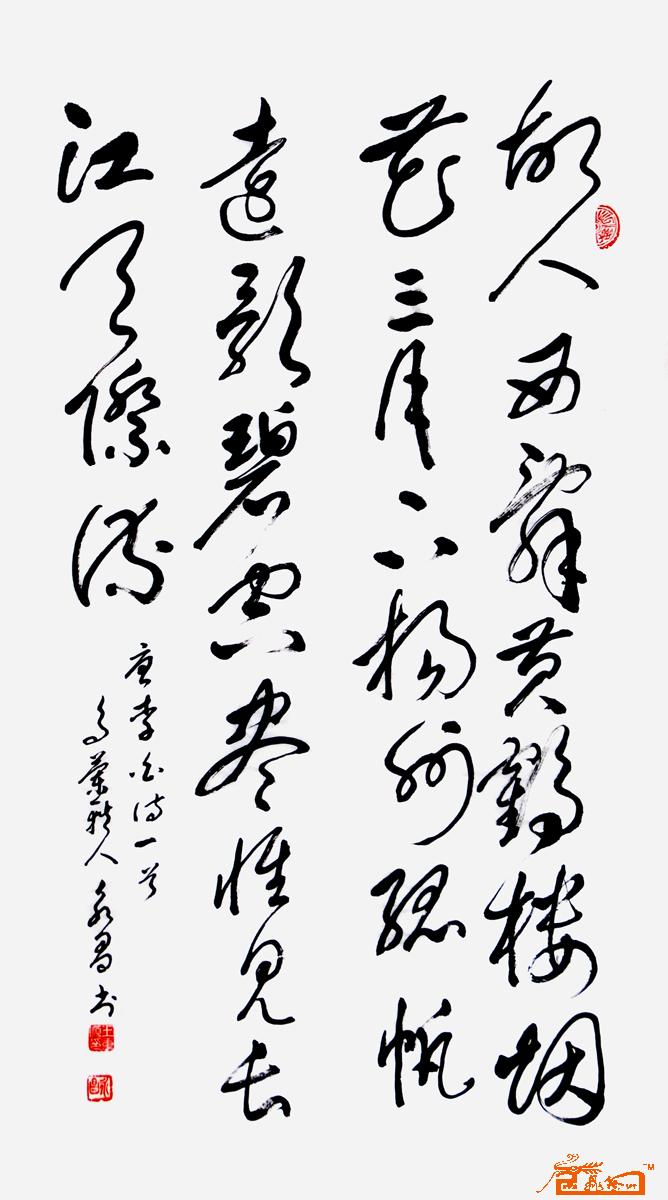 故人西辞黄鹤楼烟
花三月下杨州孤帆
远影碧空尽惟见长
江天际流
唐李白诗一首
兰雅人永昌书